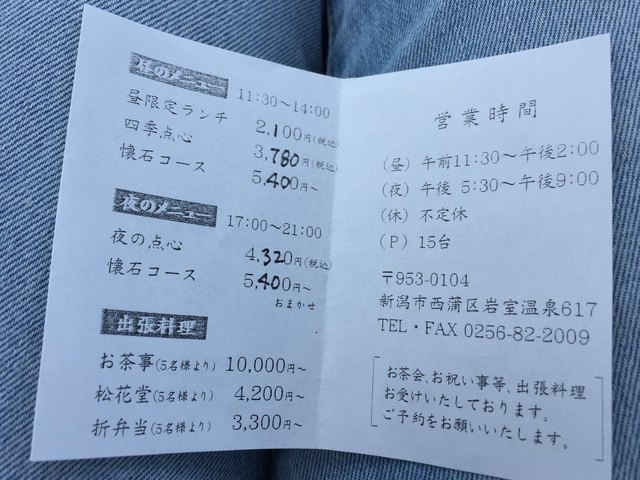 昼のメニュー 11:30～14:00
昼限定ランチ 2,100円(税込)
四季点心 3,780円(税込)
懐石コース 5,400円～
夜のメニュー 17:00～21:00
夜の点心 4,320円(税込)
懐石コース 5,400円～
おまかせ
出張料理
お茶事(5名様より) 10,000円～
松花堂(5名様より) 4,200円～
折弁当(5名様より) 3,300円～
営業時間
(昼) 午前11:30～午後2:00
(夜) 午後 5:30～午後9:00
(休) 不定休
(P) 15台
〒953-0104
新潟市西蒲区岩室温泉617
TEL・FAX 0256-82-2009
お茶会、お祝い事等、出張料理
お受けいたしております。
ご予約をお願いいたします。